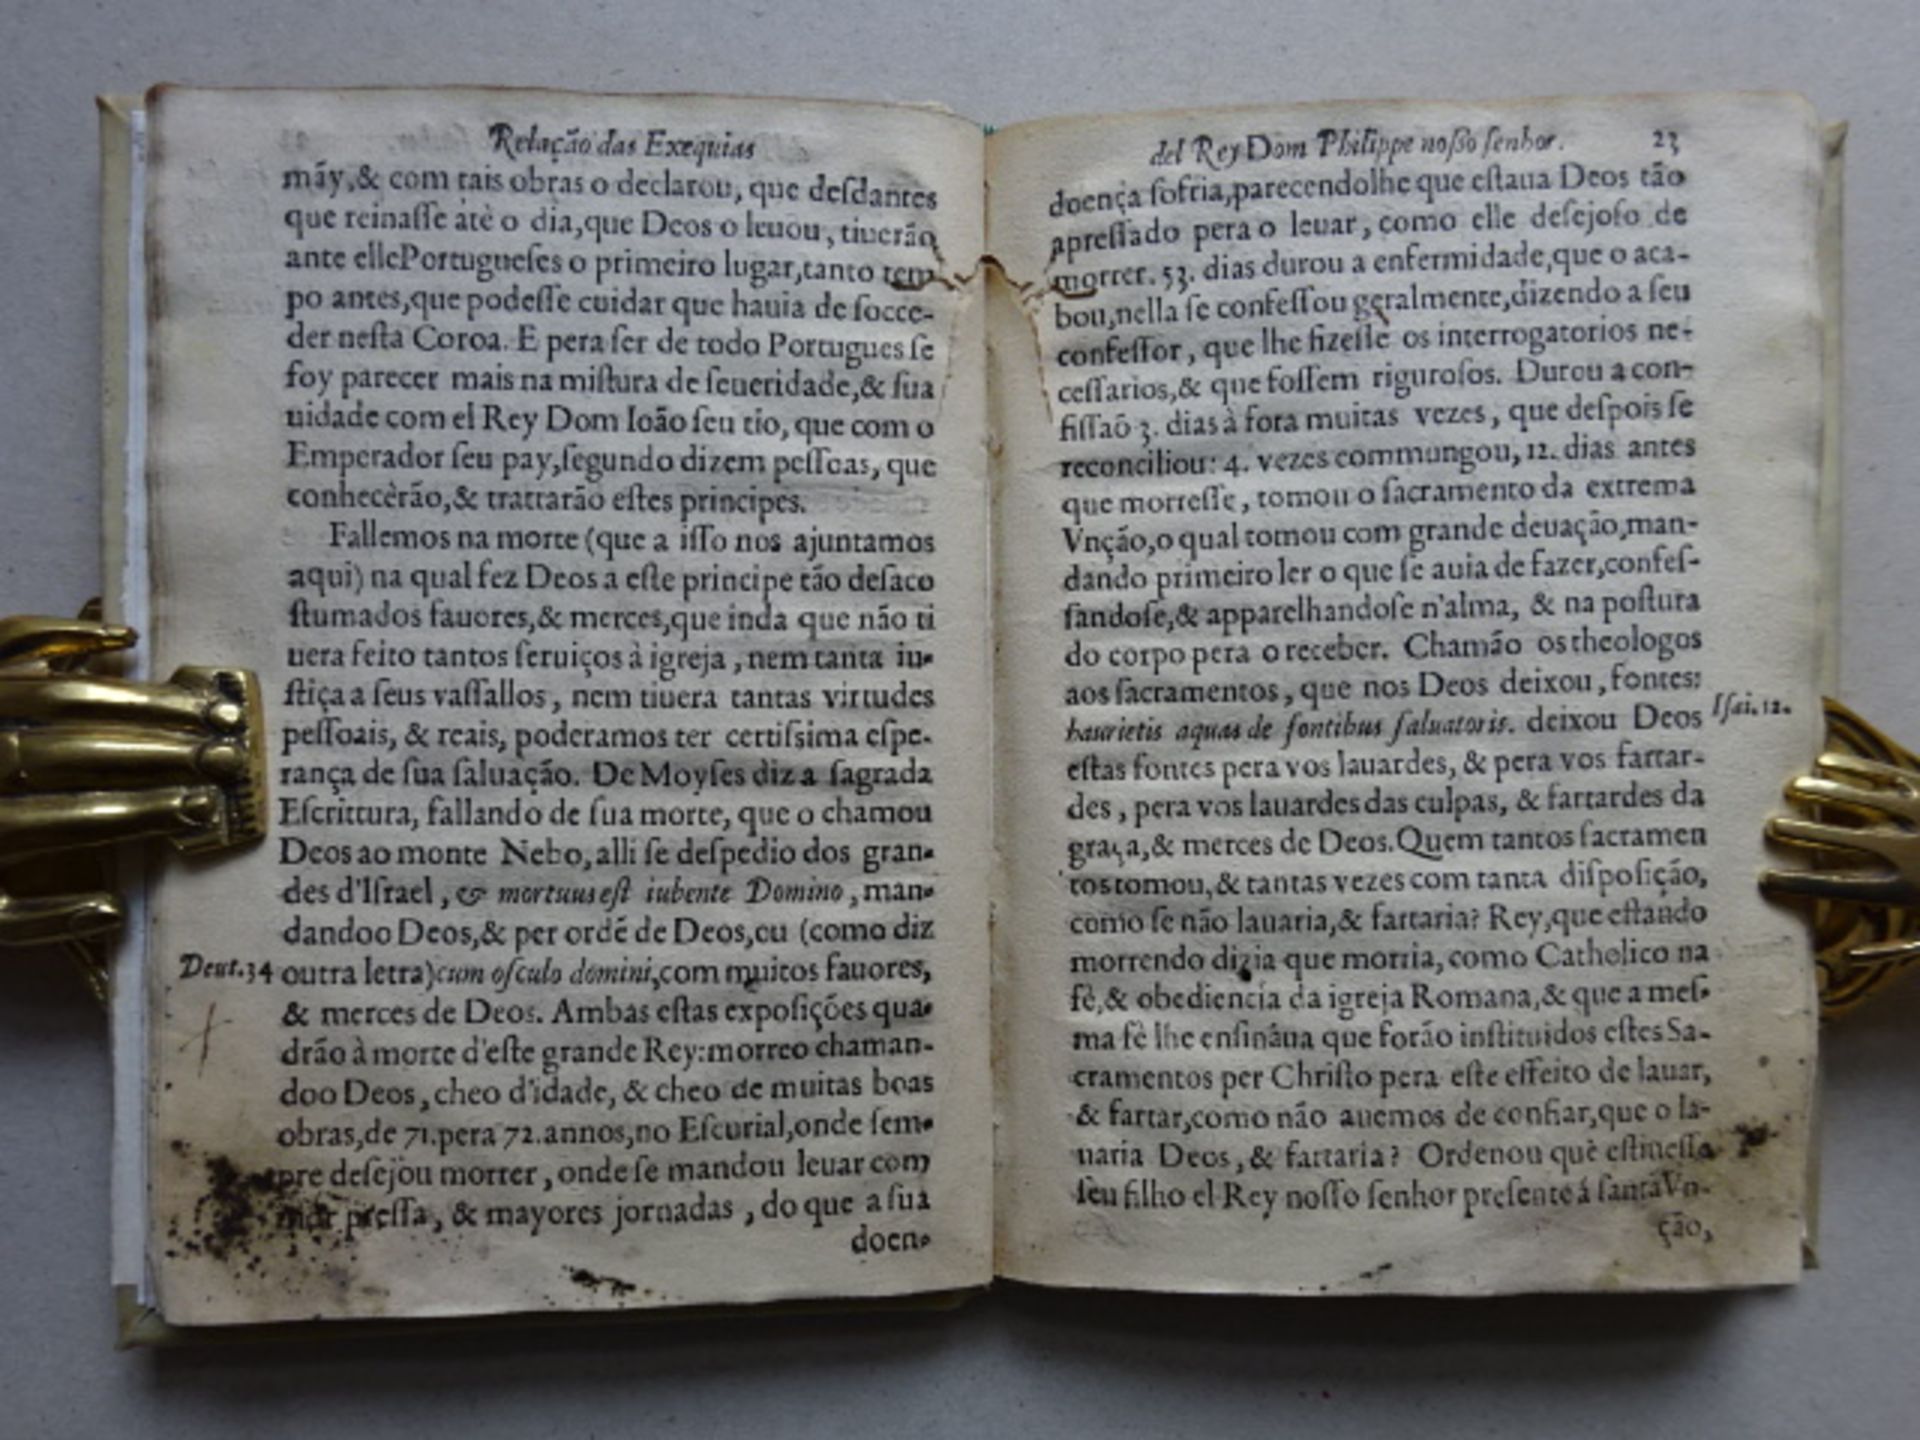 Relação das Exequias
máy,& com tais obras o declarou, que desdantes
que reinasse atè o dia,que Deos o leuou, tiuerão
ante elle Portugueses o primeiro lugar,tanto tem
po antes,que podesse cuidar que hauia de socce-
der nesta Coroa. E pera ser de todo Portugues se
foy parecer mais na mistura de seueridade,& sua
uidade com el Rey Dom Ioão seu tio, que com o
Emperador seu pay,segundo dizem pessoas, que
conhecèrão,& trattarão estes principes.
Fallemos na morte (que a isso nos ajuntamos
aqui) na qual fez Deos a este principe tão desaco
stumados fauores,& merces,que inda que não ti
uera feito tantos seruiços à igreja , nem tanta iu-
stiça a seus vassallos , nem tiuera tantas virtudes
pessoais, & reais, poderamos ter certissima espe-
rança de sua saluação. De Moyses diz a sagrada
Escrittura, fallando de sua morte, que o chamou
Deos ao monte Nebo, alli se despedio dos gran-
des d'Israel , & mortuus est iubente Domino , man-
dandoo Deos,& per ordẽ de Deos,ou (como diz
Deut.34 outra letra)cum osculo domini,com muitos fauores,
& merces de Deos. Ambas estas exposições qua-
drão à morte d'este grande Rey:morreo chaman-
doo Deos, cheo d'idade, & cheo de muitas boas
obras,de 71.pera 72.annos,no Escurial,onde sem-
pre desejou morrer , onde se mandou leuar com
mór pressa, & mayores jornadas , do que a sua
doen-
del Rey Dom Philippe nosso senhor. 23
doença sofria,parecendolhe que estaua Deos tão
apressado pera o leuar, como elle desejoso de
morrer. 53. dias durou a enfermidade,que o aca-
bou,nella se confessou geralmente,dizendo a seu
confessor , que lhe fizesse os interrogatorios ne-
cessarios,& que fossem rigurosos. Durou a con-
fissaõ 3. dias à fora muitas vezes , que despois se
reconciliou: 4. vezes commungou, 12. dias antes
que morresse , tomou o sacramento da extrema
Vnção,o qual tomou com grande deuação,man-
dando primeiro ler o que se auia de fazer,confes-
sandose,& apparelhandose n'alma, & na postura
do corpo pera o receber. Chamão os theologos
aos sacramentos , que nos Deos deixou , fontes:
haurietis aquas de fontibus saluatoris. deixou Deos Isai. 12.
estas fontes pera vos lauardes, & pera vos fartar-
des , pera vos lauardes das culpas, & fartardes da
graça,& merces de Deos.Quem tantos sacramen
tos tomou,& tantas vezes com tanta disposição,
como se não lauaria,& fartaria? Rey,que estando
morrendo dizia que morria, como Catholico na
fè,& obediencia da igreja Romana,& que a mes-
ma fè lhe ensinâua que forão instituidos estes Sa-
cramentos per Christo pera este effeito de lauar,
& fartar,como não auemos de confiar,que o la-
uaria Deos , & fartaria? Ordenou què estiuesse
seu filho el Rey nosso senhor presente á santa Vn-
ção,